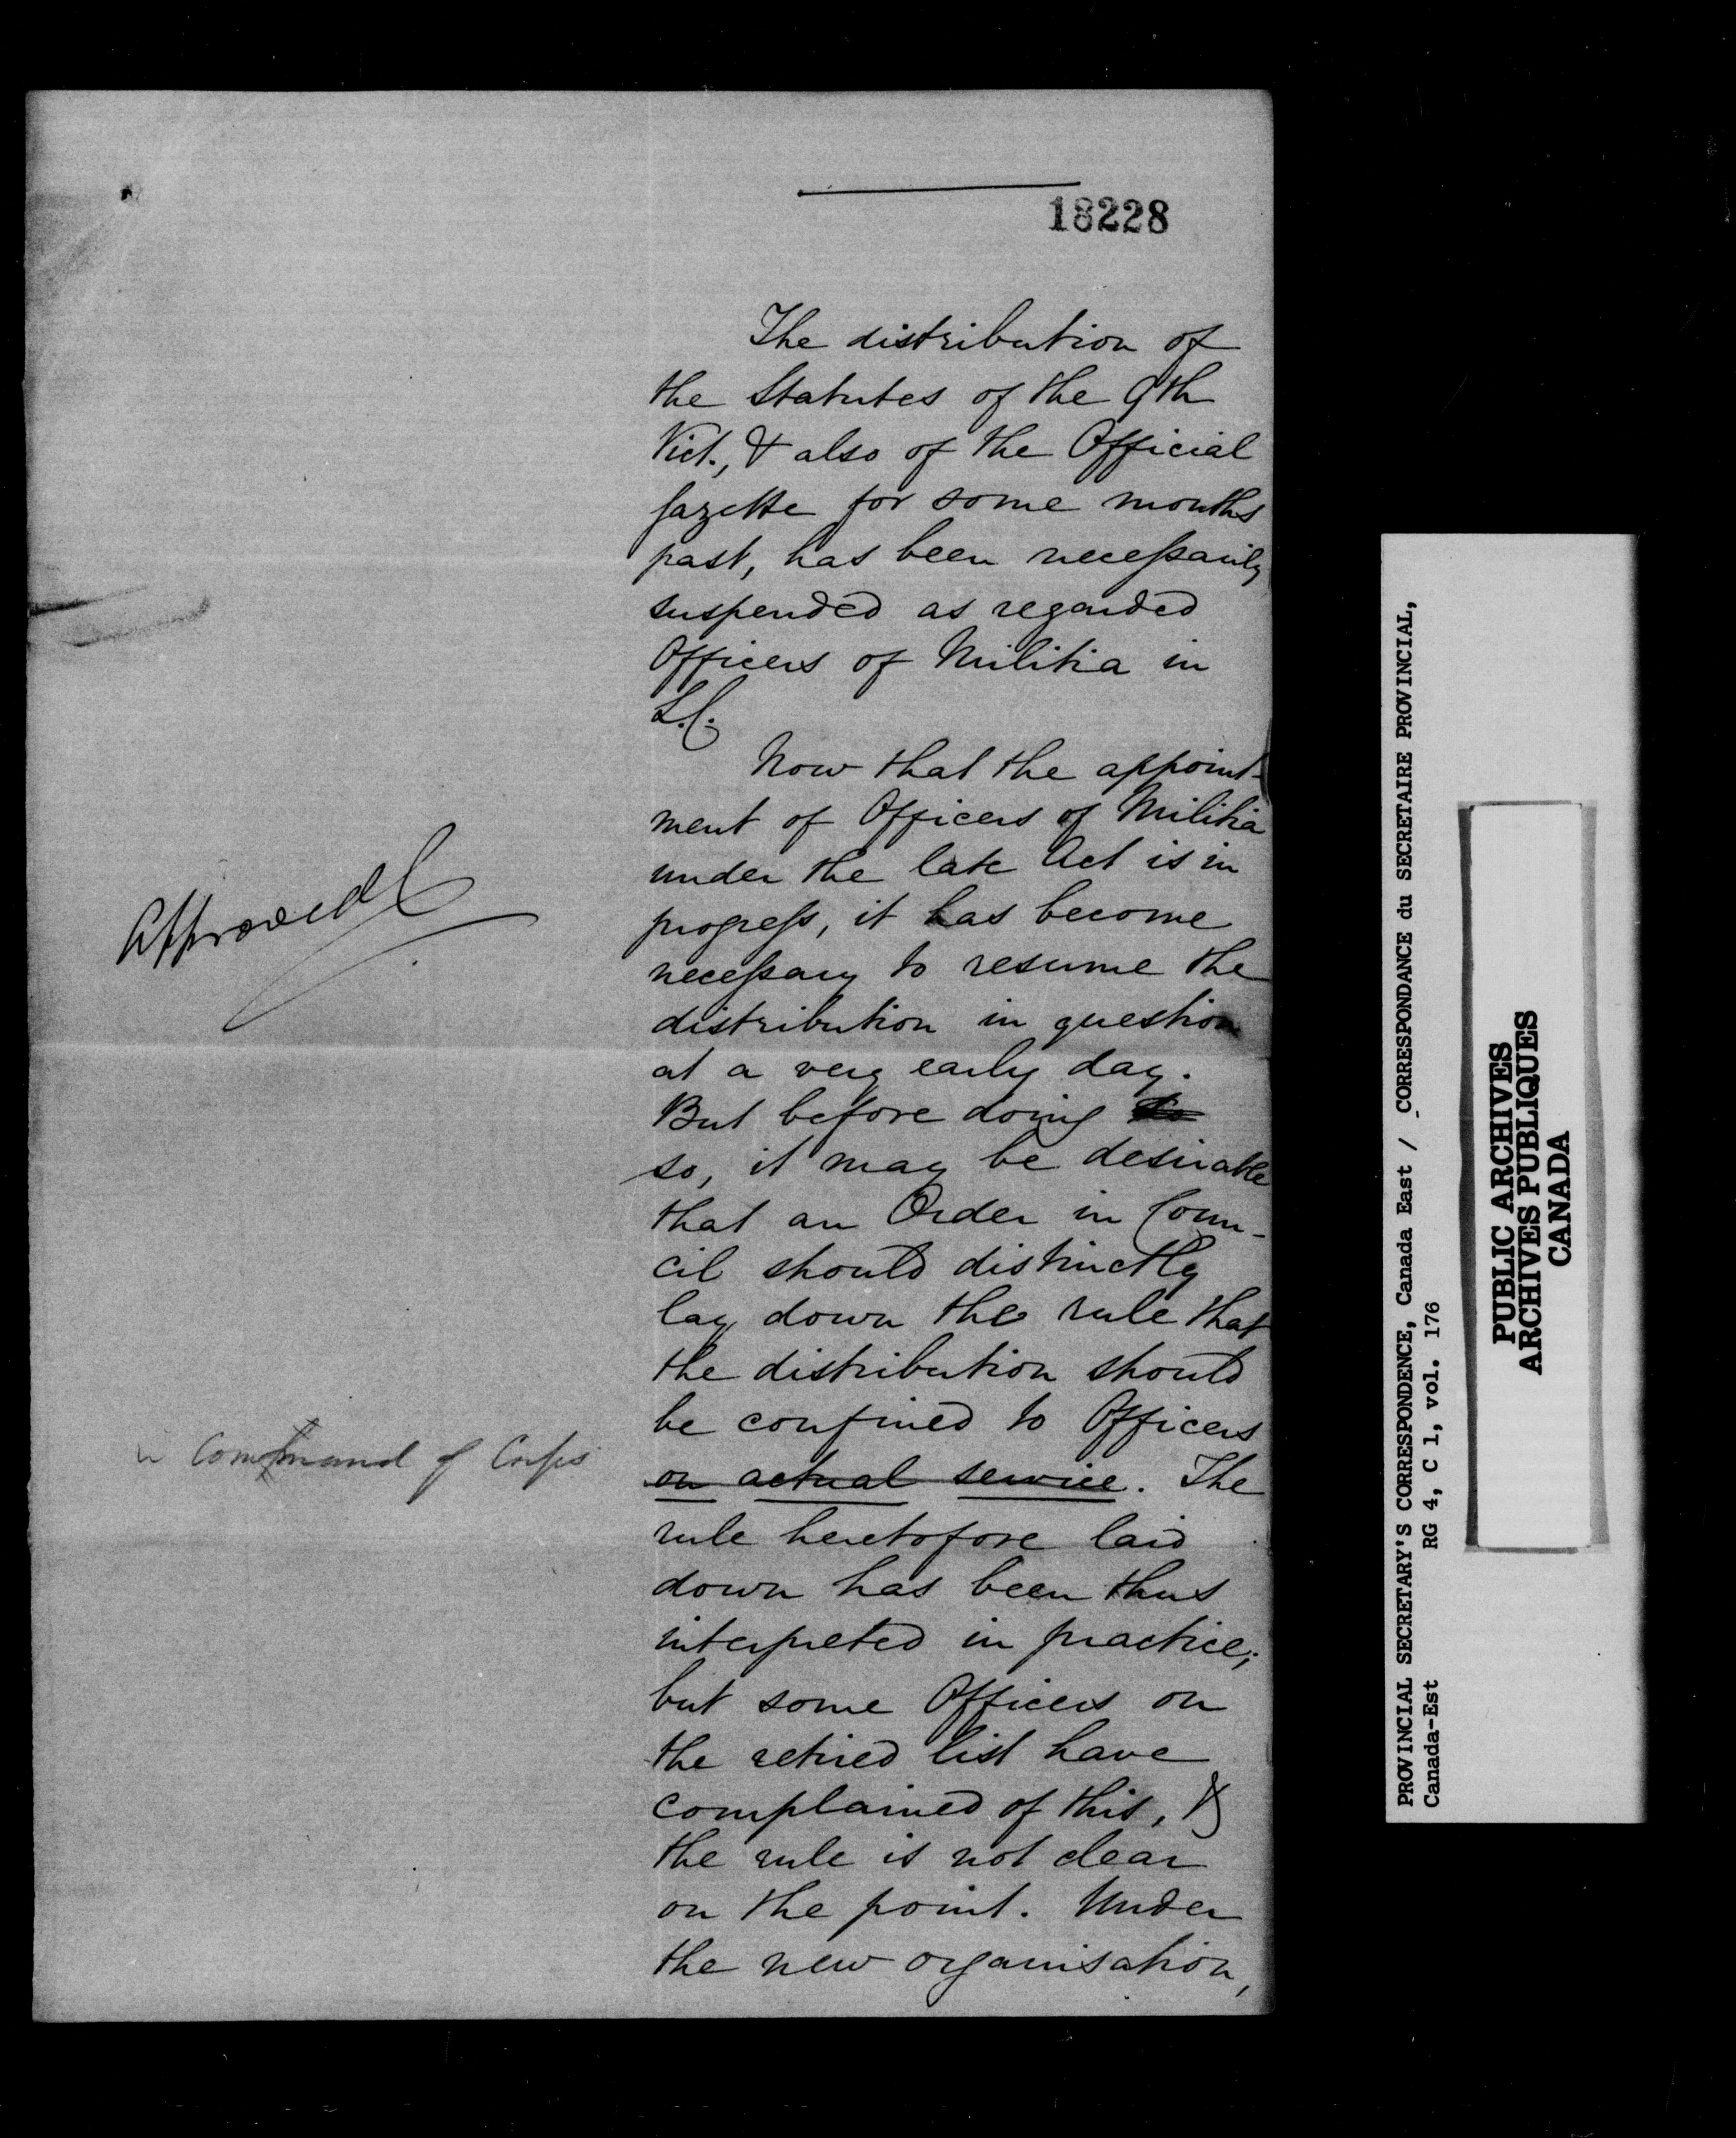 18228
The distribution of
the Statutes of the 9th
Vict., & also of the Official
Gazette for some months
past, has been necessarily
suspended as regarded
Officers of Militia in
L.C.
Now that the appoint-
ment of Officers of Militia
under the late Act is in
progress, it has become
necessary to resume the
distribution in question
at a very early day.
But before doing so
so, it may be desirable
that an Order in Coun-
cil should distinctly
lay down the rule that
the distribution should
be confined to Officers
on actual service. The
rule heretofore laid
down has been thus
interpreted in practice;
but some Officers on
the retired list have
complained of this, &
the rule is not clear
on the point. Under
the new organisation,
Approved
in Command of Corps
PROVINCIAL SECRETARY'S CORRESPONDENCE, Canada East / CORRESPONDANCE du SECRETAIRE PROVINCIAL,
Canada-Est RG 4, C 1, vol. 176
PUBLIC ARCHIVES
ARCHIVES PUBLIQUES
CANADA